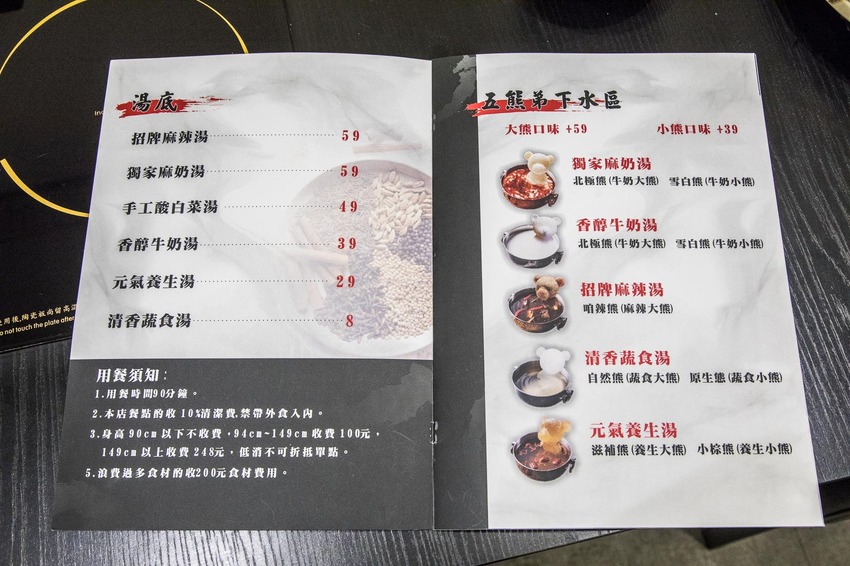 湯底
招牌麻辣湯 59
獨家麻奶湯 59
手工酸白菜湯 49
香醇牛奶湯 39
元氣養生湯 29
清香蔬食湯 8
用餐須知：
1.用餐時間90分鐘。
2.本店餐點酌收 10%清潔費,禁帶外食入內。
3.身高 90cm 以下不收費，94cm~149cm 收費 100元，
149cm 以上收費 248元，低消不可折抵單點。
5.浪費過多食材酌收200元食材費用。
五熊弟下水區
大熊口味 +59 小熊口味 +39
獨家麻奶湯
北極熊(牛奶大熊) 雪白熊(牛奶小熊)
香醇牛奶湯
北極熊(牛奶大熊) 雪白熊(牛奶小熊)
招牌麻辣湯
咱辣熊(麻辣大熊)
清香蔬食湯
自然熊(蔬食大熊) 原生態(蔬食小熊)
元氣養生湯
滋補熊(養生大熊) 小棕熊(養生小熊)
使用後,陶瓷板尚留高溫
not touch the plate after